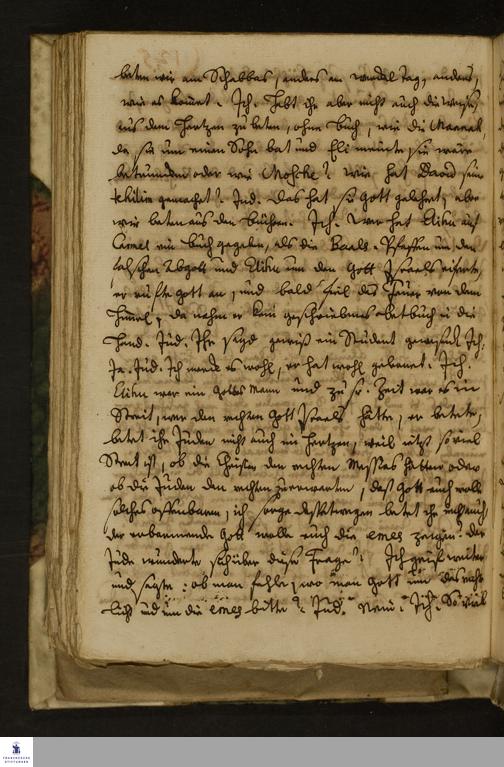 beten wir am Schabbas, anders am wandel tag, anders,
wie es kommt. Ich. Habt ihr aber nicht auch die weise,
aus dem Hertzen zu beten, ohne buch, wie die Hannah,
da sie um einen Sohn bat und Eli meinte, sie wäre
betruncken oder wie Moscke? wie hat David sein
tehilim gemachet? Jud. das hat sie Gott gelehret, aber
wir beten aus den büchern. Ich. Wer hat Elia auf
Carmel ein buch gegeben, als die Baals-Pfaffen um den
falschen Abgott und Elia um den Gott Israels eiferte,
er ruffte Gott an, und bald fiel das Feuer von dem
Himmel, da nahm er kein geschriebenes betbuch in die
Hand. Jud. Ihr seyd gewiß ein Student gewesen? Ich.
Ja. Jud. Ich mercke es wohl, er hat wohl gelernet. Ich.
Elia war ein Gottes Mann und zu sr. Zeit war es im
Streit, wer den rechten Gott Israels hätte, er betete,
betet ihr Juden nicht auch im Hertzen, weil jetzt so viel
Streit ist, ob die Christen den rechten Messias hätten oder
ob die Juden den rechten zu erwarten, daß Gott euch wolle
solches offenbaren, ich sage deßwegen betet ihr nicht auch,
der erbarmende Gott wolle euch die emes zeigen? der
Jude wunderte sich über diese Frage. Ich weiter
und sagte: ob man fehle, wo man Gott um das
lich und um die emes bitte? Jud. Nein. Ich. So viel

FRANCKESCHE
STIFTUNGEN